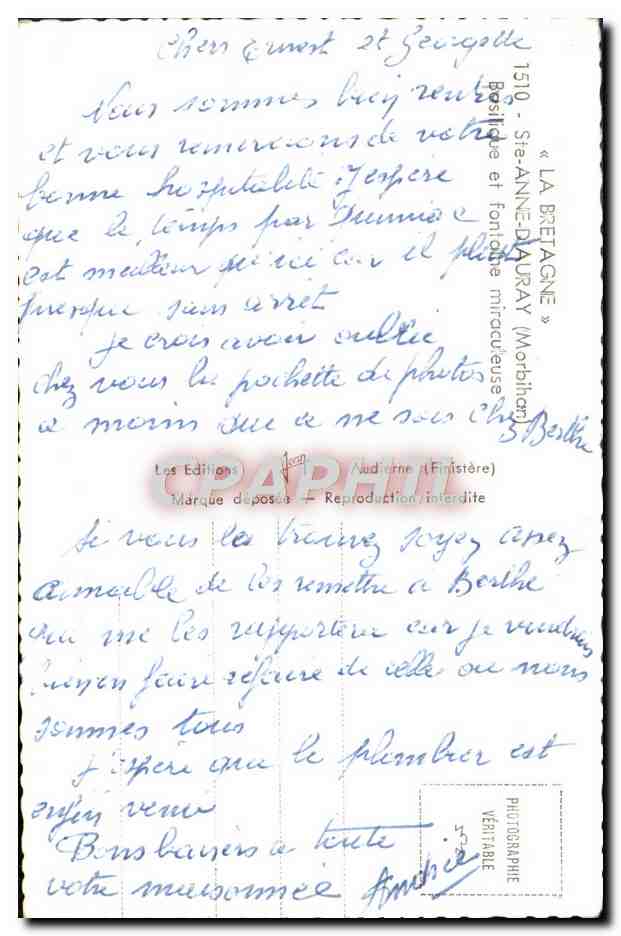 Chers Ernest et Georgette
Nous sommes bien rentrés
et vous remercions de votre
bonne hospitalité. J'espère
que le temps par
est meilleur qu'ici car il pleut
presque sans arrêt
Je crois avoir oublié
chez vous la pochette de photos
a moins que ce ne sois chez Berthe
Si vous la trouvez soyez assez
aimable de les remettre a Berthe
qui me les rapportera car je voudrais
bien en faire refaire de celle ou nous
sommes tous
J'espère que le plombier est
enfin venu
Bons baisers a toute
votre maisonnée
« LA BRETAGNE »
1510 - Ste-ANNE-D'AURAY (Morbihan)
Basilique et fontaine miraculeuse
Les Editions Jean Audierne (Finistère)
Marque déposée — Reproduction interdite
CPAPHIL
PHOTOGRAPHIE
VÉRITABLE